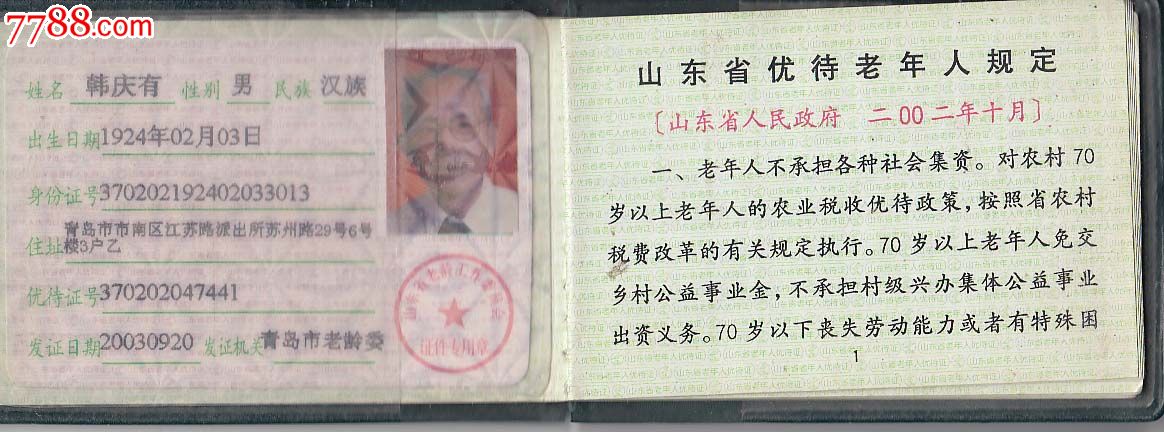 7788.com
姓名 韩庆有 性别 男 民族 汉族
出生日期 1924年02月03日
身份证号 370202192402033013
住址 青岛市市南区江苏路派出所苏州路29号6号
楼3户乙
优待证号 370202047441
发证日期 20030920 发证机关 青岛市老龄委
证件专用章
山东省优待老年人规定
〔山东省人民政府 二00二年十月〕
一、老年人不承担各种社会集资。对农村70
岁以上老年人的农业税收优待政策，按照省农村
税费改革的有关规定执行。70岁以上老年人免交
乡村公益事业金，不承担村级兴办集体公益事业
出资义务。70岁以下丧失劳动能力或者有特殊困
1